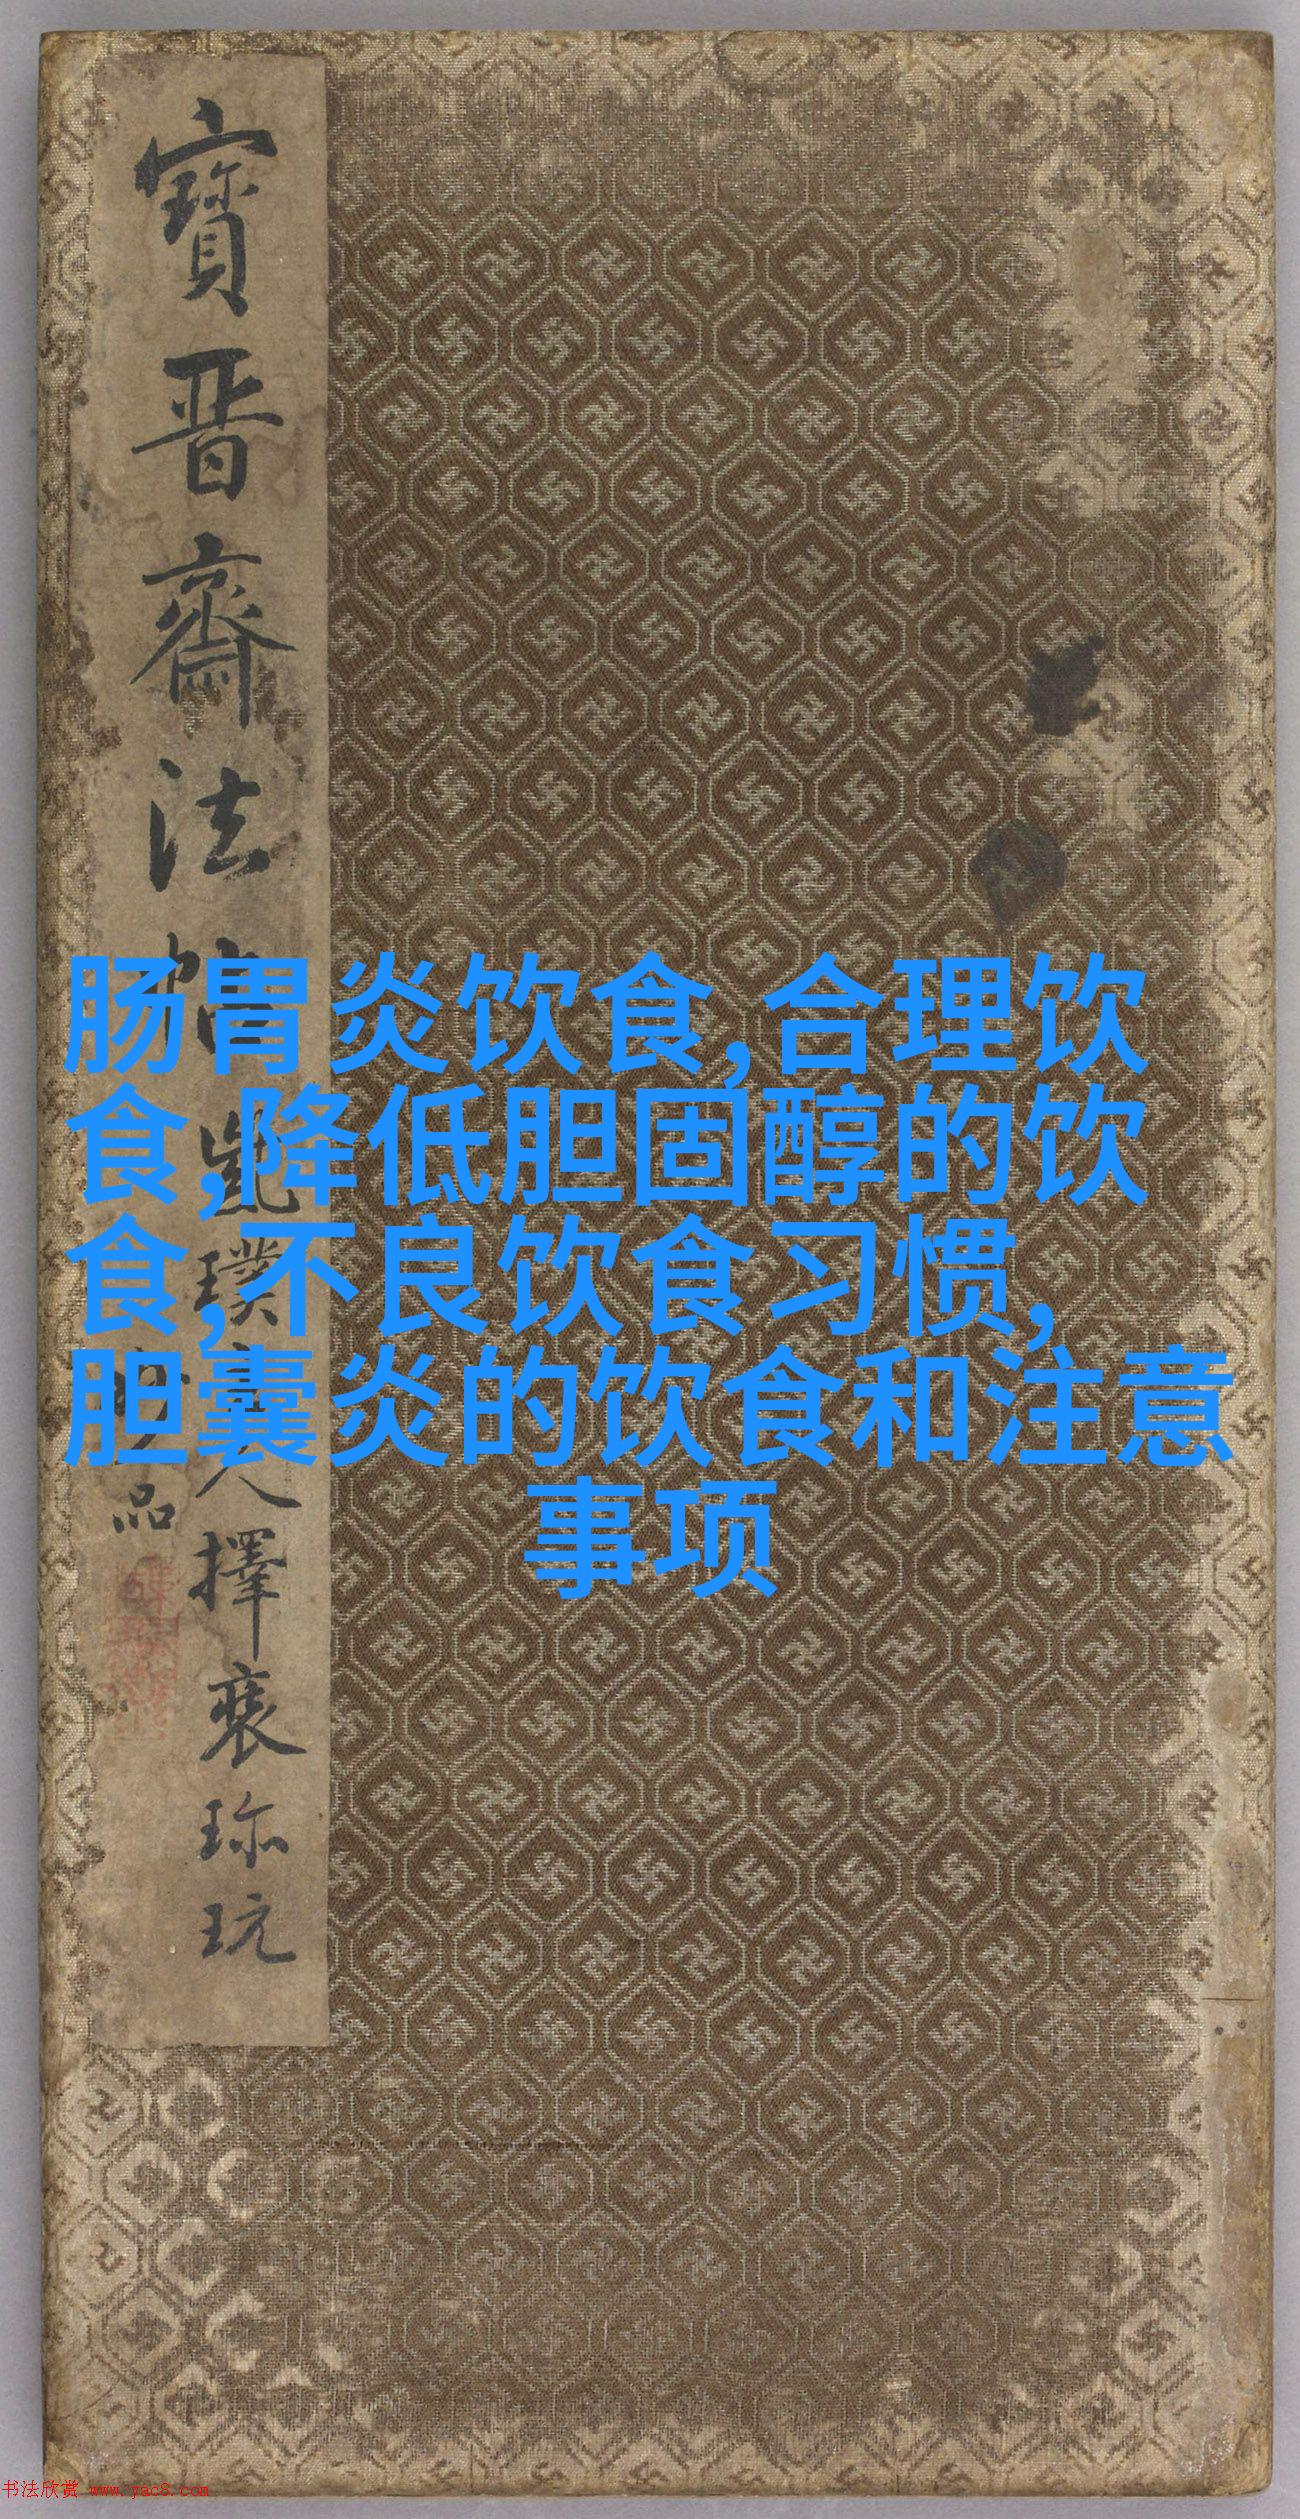 寶晋齋法帖
璞
人擇裘珎玩
品
肠胃炎饮食,合理饮
食,降低胆固醇的饮
食,不良饮食习惯,
胆囊炎的饮食和注意
事项
书法欣赏 www.yac8.com